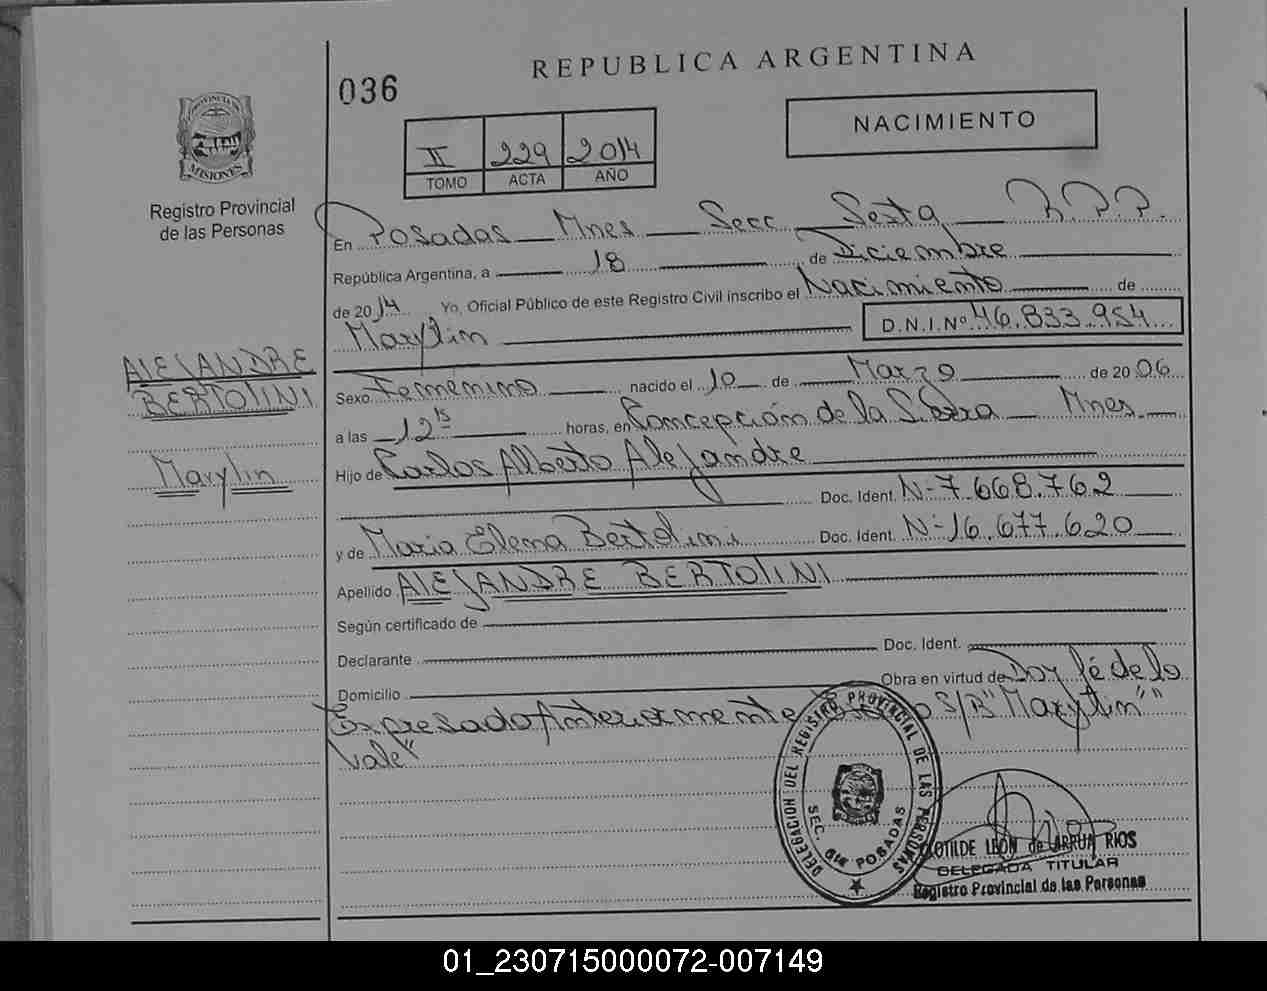 REPUBLICA ARGENTINA
036
NACIMIENTO
II 229 2014
TOMO ACTA AÑO
PROVINCIA DE MISIONES
Registro Provincial
de las Personas
En Posadas Mnes Secc Sexta R.P.P.
República Argentina, a 18 de Diciembre
de 2014 Yo, Oficial Público de este Registro Civil inscribo el Nacimiento de
Marylin D.N.I.Nº 46.833.954
ALEJANDRE
BERTOLINI
Marylin
Sexo Femenino nacido el 10 de Marzo de 2006
a las 12 15 horas, en Concepción de la Sierra Mnes
Hijo de Carlos Alberto Alejandre
Doc. Ident. Nº 7.668.762
y de Maria Elena Bertolini Doc. Ident. Nº 16.677.620
Apellido ALEJANDRE BERTOLINI
Según certificado de
Declarante Doc. Ident.
Domicilio Obra en virtud de Doy fé de lo
Expresado Anteriormente S/B "Marylin"
Vale"
DELEGACION DEL REGISTRO PROVINCIAL DE LAS PERSONAS
SEC. 6ta POSADAS
CLOTILDE LEON de ARRUA RIOS
DELEGADA TITULAR
Registro Provincial de las Personas
01_230715000072-007149